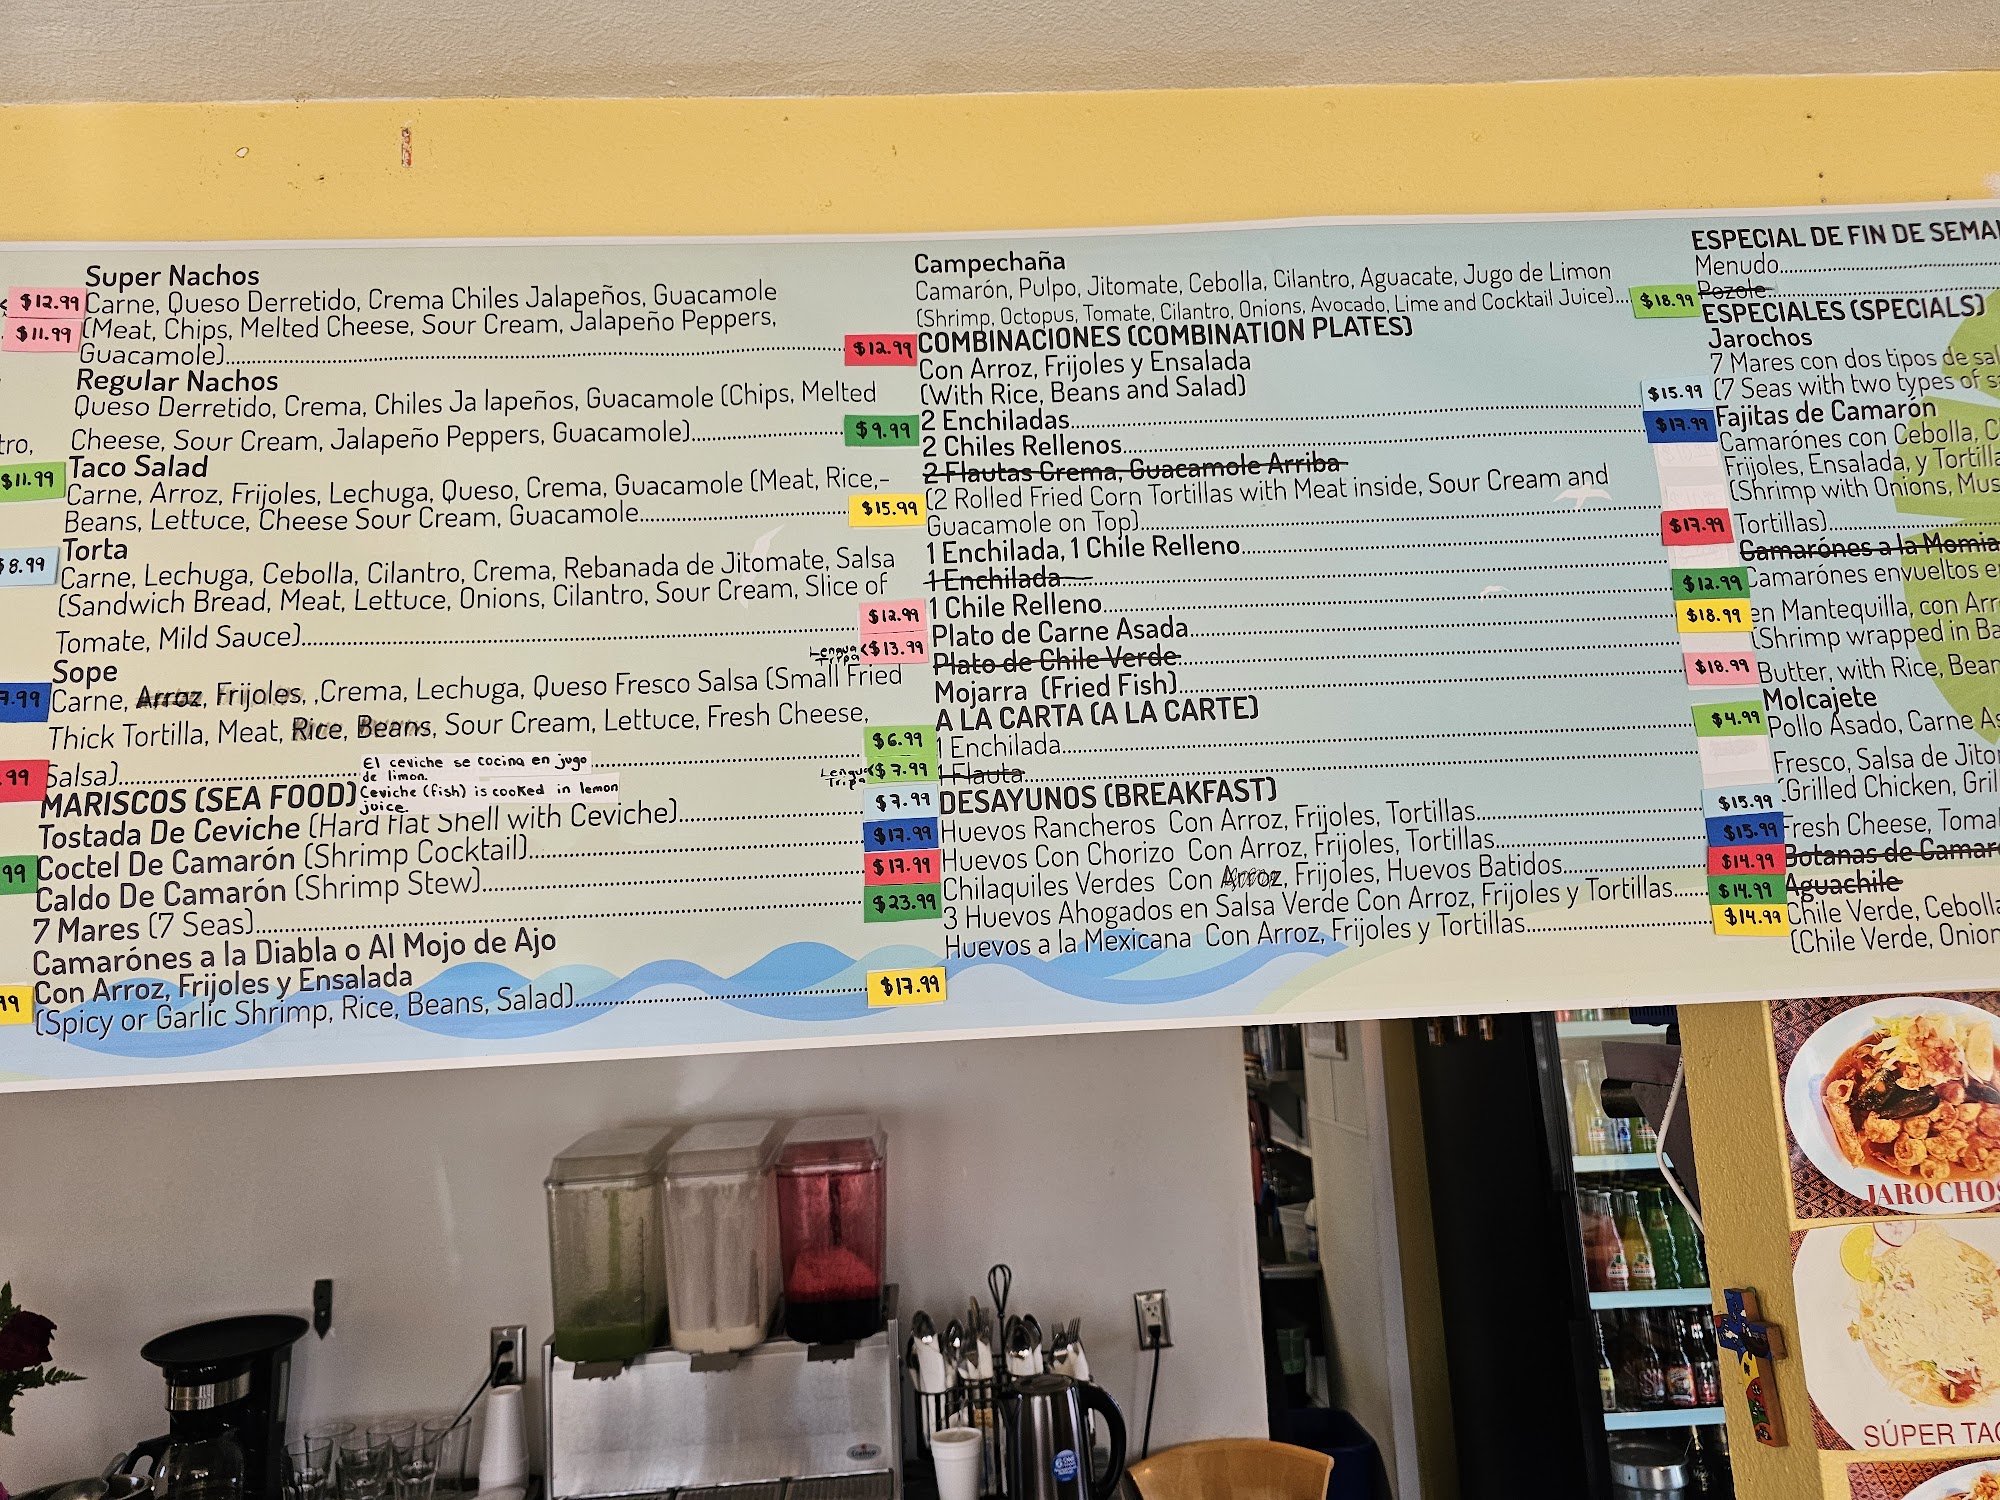 $12.99
$11.99
tro,
$11.99
$8.99
7.99
.99
99
99
Super Nachos
Carne, Queso Derretido, Crema Chiles Jalapeños, Guacamole
(Meat, Chips, Melted Cheese, Sour Cream, Jalapeño Peppers,
Guacamole)........ $12.99
Regular Nachos
Queso Derretido, Crema, Chiles Ja lapeños, Guacamole (Chips, Melted
Cheese, Sour Cream, Jalapeño Peppers, Guacamole)........ $9.99
Taco Salad
Carne, Arroz, Frijoles, Lechuga, Queso, Crema, Guacamole (Meat, Rice,-
Beans, Lettuce, Cheese Sour Cream, Guacamole........ $15.99
Torta
Carne, Lechuga, Cebolla, Cilantro, Crema, Rebanada de Jitomate, Salsa
(Sandwich Bread, Meat, Lettuce, Onions, Cilantro, Sour Cream, Slice of
Tomate, Mild Sauce)........ $12.99
Lengua Tripa <$13.99
Sope
Carne, Arroz, Frijoles, ,Crema, Lechuga, Queso Fresco Salsa (Small Fried
Thick Tortilla, Meat, Rice, Beans, Sour Cream, Lettuce, Fresh Cheese,
$6.99
Salsa)........ Lengua Tripa <$7.99
El ceviche se cocina en jugo
de limon.
Ceviche (fish) is cooked in lemon
juice.
MARISCOS (SEA FOOD)
Tostada De Ceviche (Hard Flat Shell with Ceviche)........ $7.99
Coctel De Camarón (Shrimp Cocktail)........ $17.99
Caldo De Camarón (Shrimp Stew)........ $17.99
7 Mares (7 Seas)........ $23.99
Camarónes a la Diabla o Al Mojo de Ajo
Con Arroz, Frijoles y Ensalada
(Spicy or Garlic Shrimp, Rice, Beans, Salad)........ $17.99
Campechaña
Camarón, Pulpo, Jitomate, Cebolla, Cilantro, Aguacate, Jugo de Limon
(Shrimp, Octopus, Tomate, Cilantro, Onions, Avocado, Lime and Cocktail Juice)... $18.99
COMBINACIONES (COMBINATION PLATES)
Con Arroz, Frijoles y Ensalada
(With Rice, Beans and Salad)
2 Enchiladas........ $15.99
2 Chiles Rellenos........ $17.99
2 Flautas Crema, Guacamole Arriba
(2 Rolled Fried Corn Tortillas with Meat inside, Sour Cream and
Guacamole on Top)........
1 Enchilada, 1 Chile Relleno........ $17.99
1 Enchilada........
1 Chile Relleno........ $12.99
Plato de Carne Asada........ $18.99
Plato de Chile Verde
Mojarra (Fried Fish)........ $18.99
A LA CARTA (A LA CARTE)
1 Enchilada........ $4.99
1 Flauta........
DESAYUNOS (BREAKFAST)
Huevos Rancheros Con Arroz, Frijoles, Tortillas........ $15.99
Huevos Con Chorizo Con Arroz, Frijoles, Tortillas........ $15.99
Chilaquiles Verdes Con Arroz, Frijoles, Huevos Batidos........ $14.99
3 Huevos Ahogados en Salsa Verde Con Arroz, Frijoles y Tortillas........ $14.99
Huevos a la Mexicana Con Arroz, Frijoles y Tortillas........ $14.99
ESPECIAL DE FIN DE SEMA
Menudo........
Pozole........
ESPECIALES (SPECIALS)
Jarochos
7 Mares con dos tipos de sal
(7 Seas with two types of s
Fajitas de Camarón
Camarónes con Cebolla, C
Frijoles, Ensalada, y Tortilla
(Shrimp with Onions, Mus
Tortillas)........
Camarónes a la Momia
Camarónes envueltos e
en Mantequilla, con Arr
(Shrimp wrapped in Ba
Butter, with Rice, Bean
Molcajete
Pollo Asado, Carne As
Fresco, Salsa de Jito
(Grilled Chicken, Gril
Fresh Cheese, Toma
Botanas de Camar
Aguachile
Chile Verde, Ceboll
(Chile Verde, Onion
JAROCHOS
SÚPER TAC